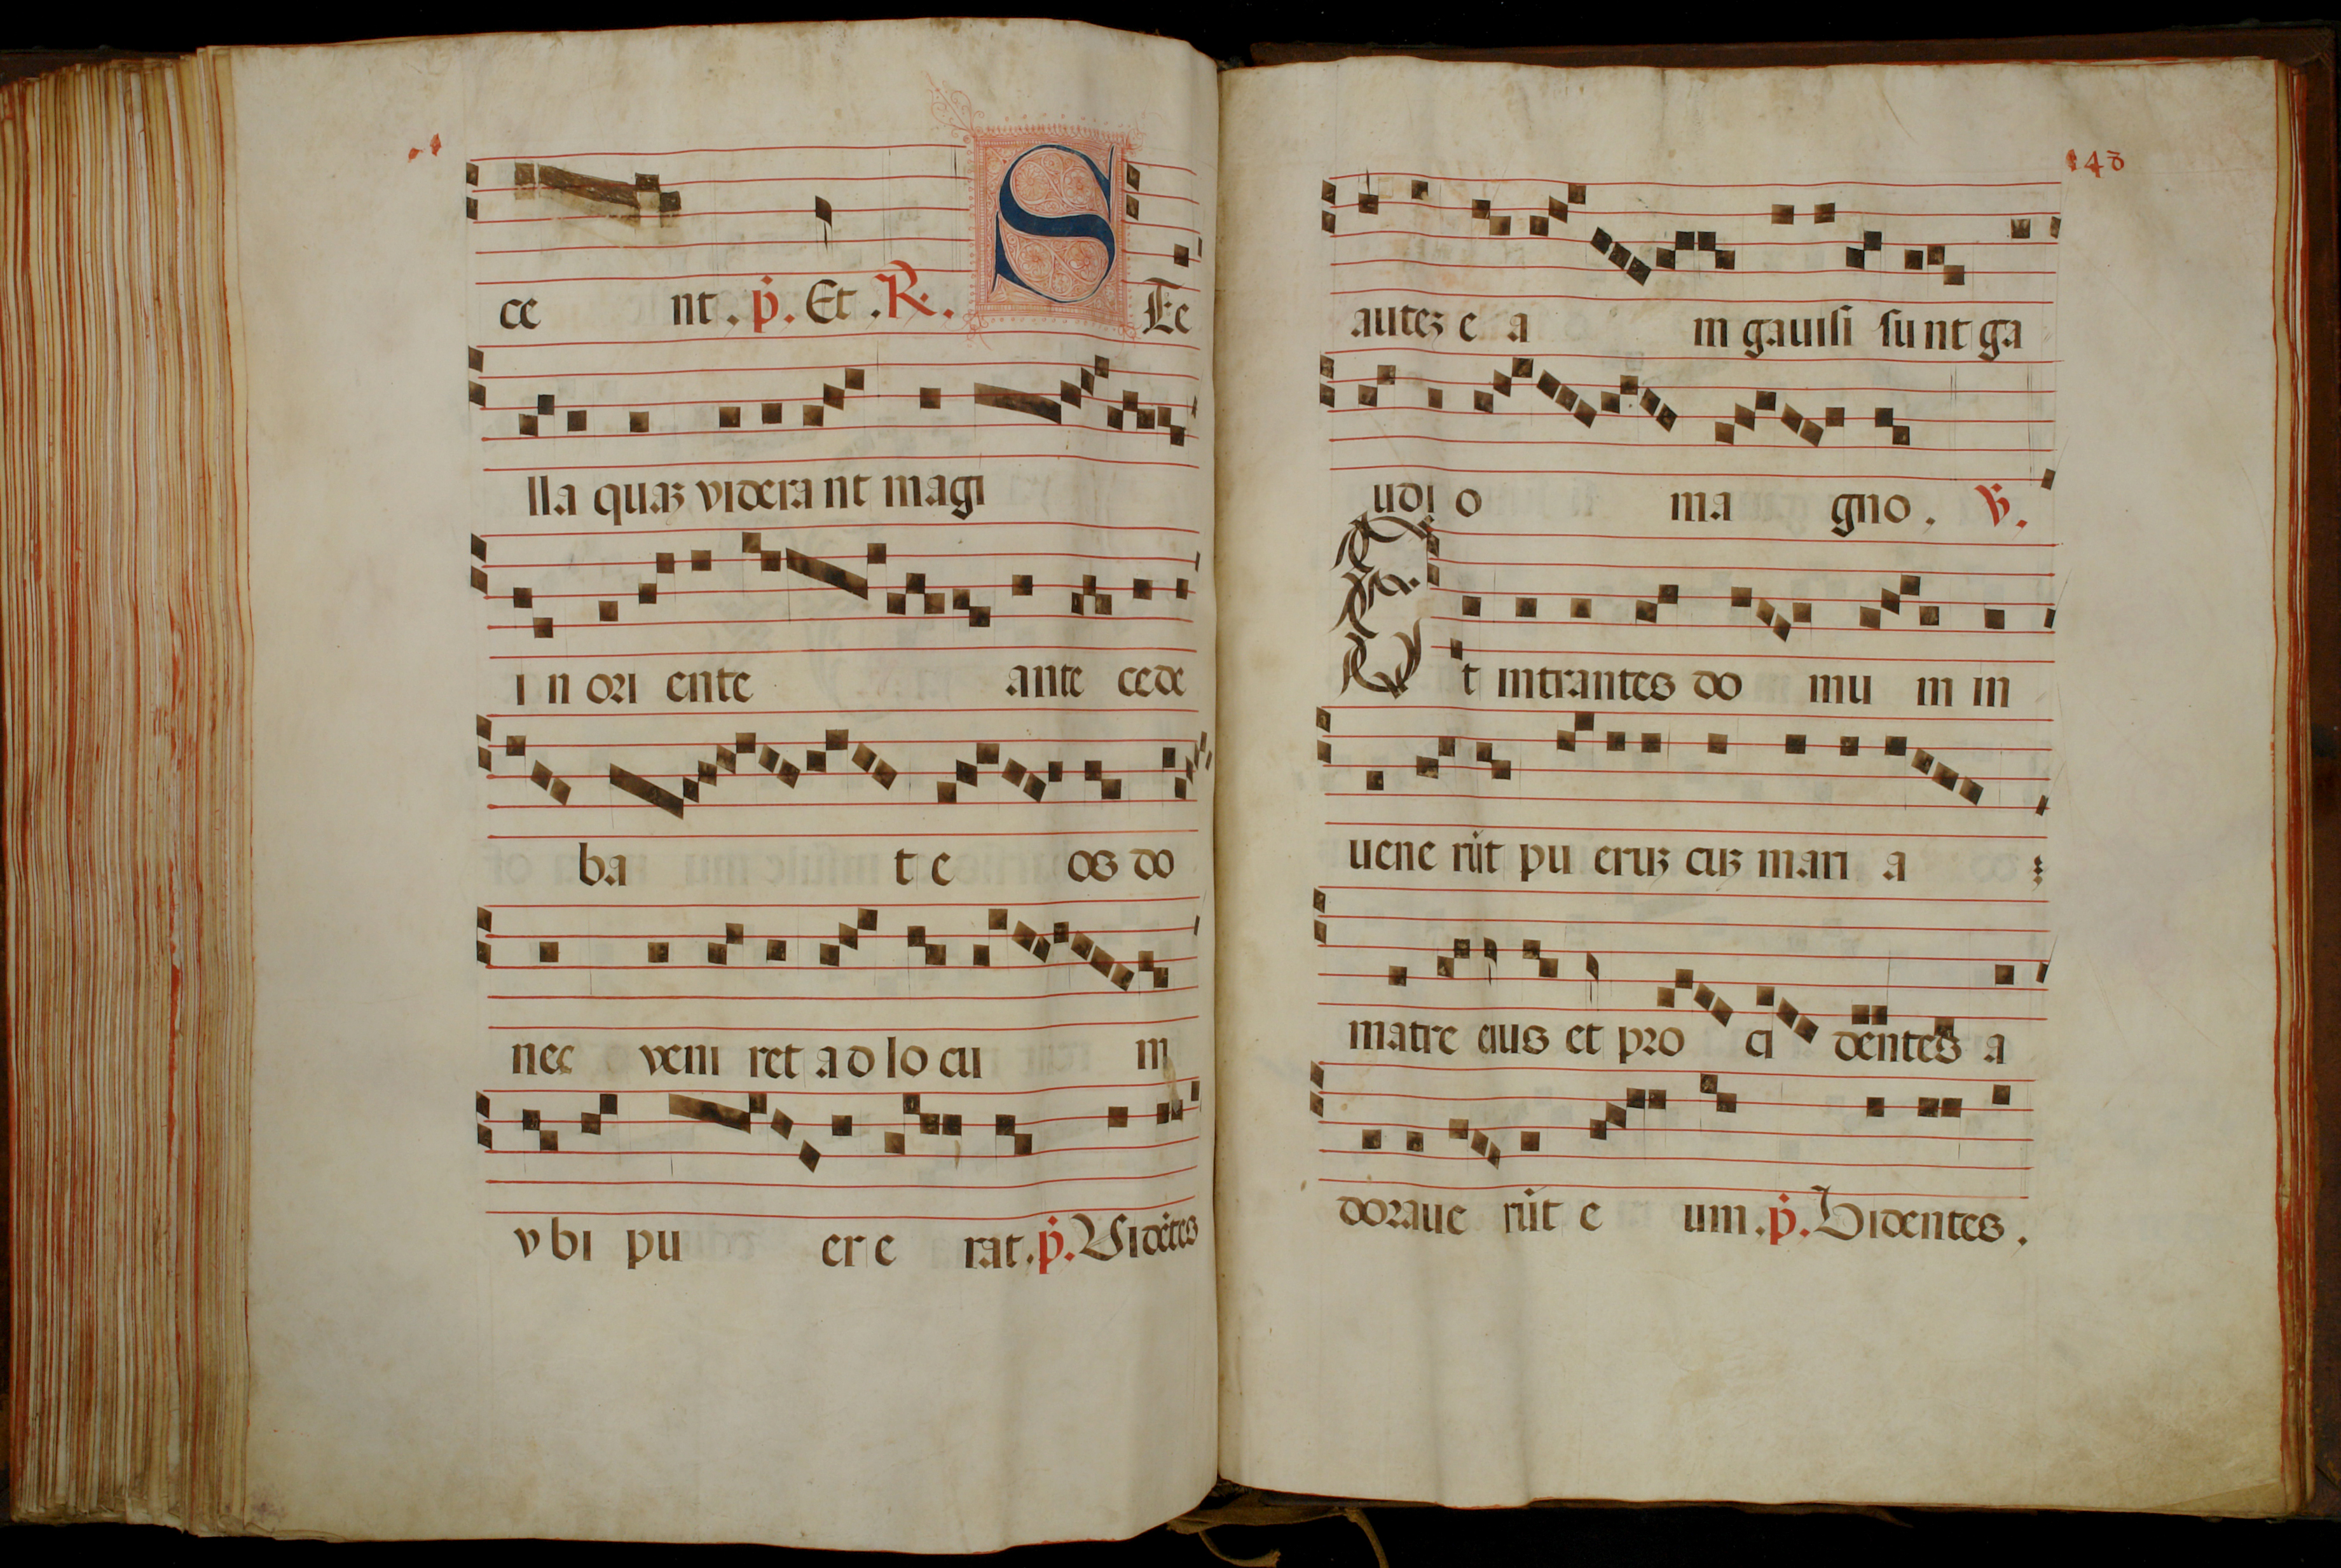 ce nt. p̄. Et. R.
STe
lla quaʒ viderant magi
in oriente antecede
bat eos do
nec veniret ad locum
vbi puer erat. p̄. Vidētes
148
auteʒ eam gauisi sunt ga
udio magno. V.
Et intrantes domum in
uenerūt pueruʒ cuʒ maria
matre eius et procidentes a
dorauerūt eum. p̄. Videntes.